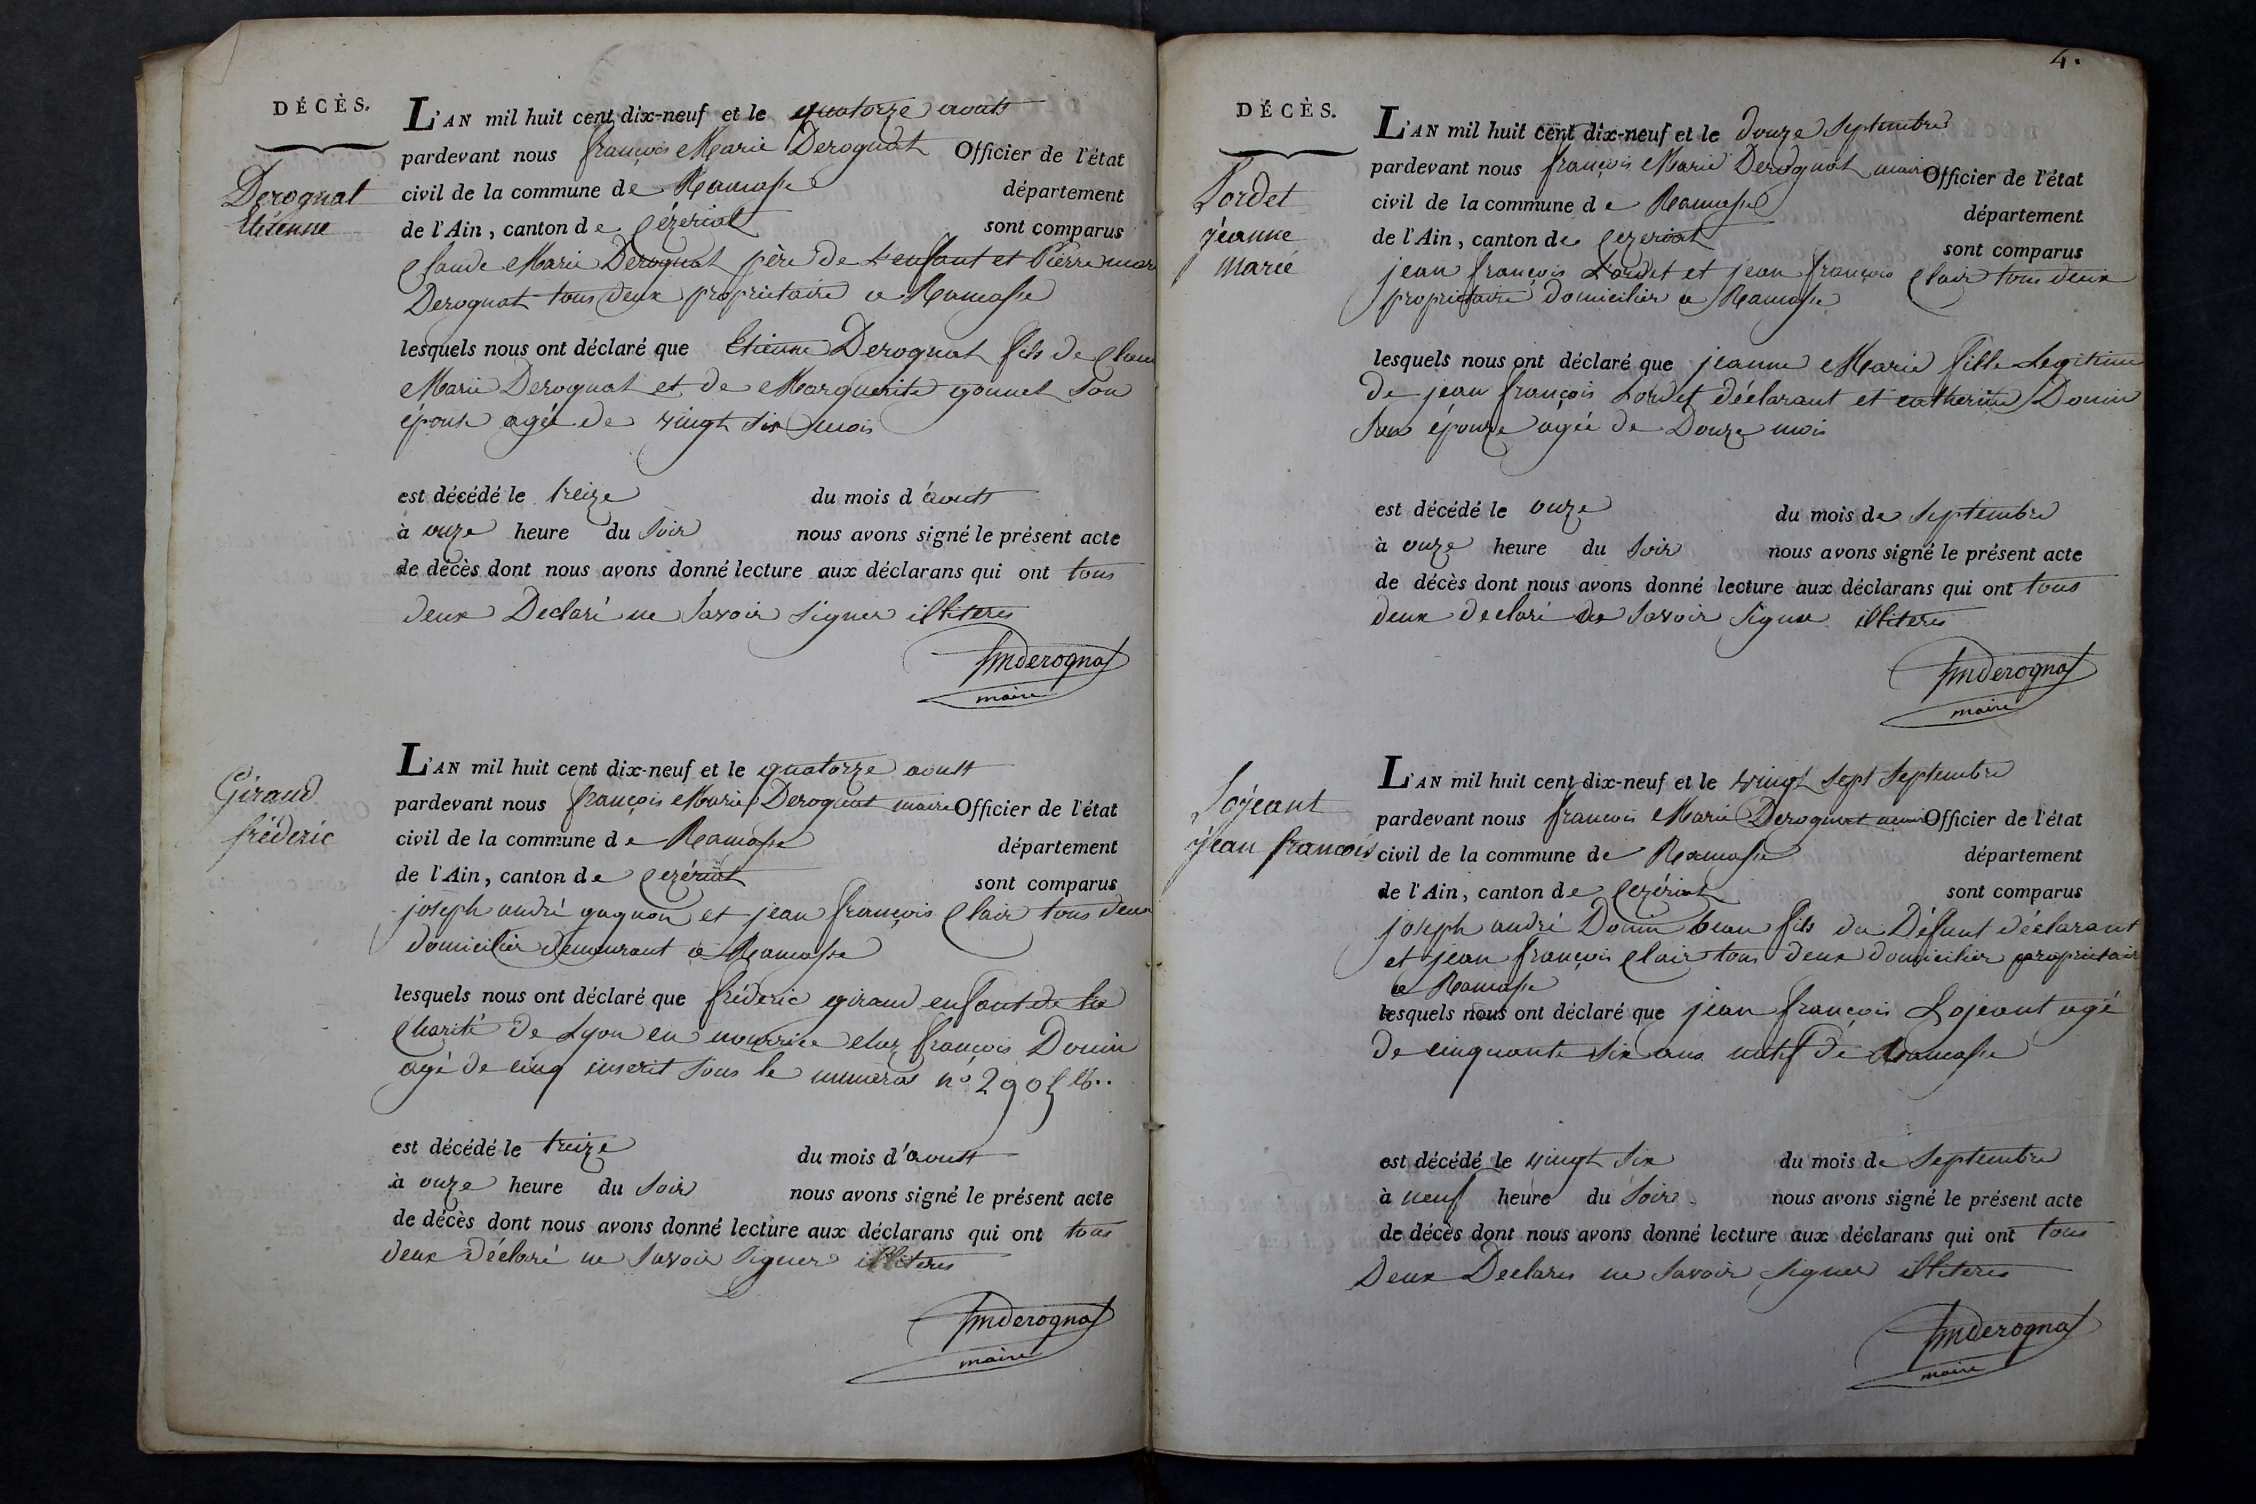 DÉCÈS.
Derognat
Etienne
L'AN mil huit cent dix-neuf et le quatorze aoutt
pardevant nous françois Marie Derognat Officier de l'état
civil de la commune de Ramasse département
de l'Ain, canton de Cézeriat sont comparus
Claude Marie Derognat père de l'enfant et Pierre mari
Derognat tous deux proprietaire a Ramasse
lesquels nous ont déclaré que Etienne Derognat fils de Clau
Marie Derognat et de Marguerite gonnet son
épouse agée de vingt six mois
est décédé le treize du mois d'aoutt
à onze heure du soir nous avons signé le présent acte
de décès dont nous avons donné lecture aux déclarans qui ont tous
deux Declaré ne savoir signer illiteres
fmderognat
maire
Giraud
fréderic
L'AN mil huit cent dix-neuf et le quatorze aoutt
pardevant nous françois Marie Derognat maire Officier de l'état
civil de la commune de Ramasse département
de l'Ain, canton de Cezériat sont comparus
joseph andré gagnon et jean françois Clair tous deux
domicilier demeurant a Ramasse
lesquels nous ont déclaré que fréderic giraud enfant de la
Charité de Lyon en nourrice chez françois Donin
agé de cinq inscrit sous le numeros n° 290
est décédé le treize du mois d'aoutt
à onze heure du soir nous avons signé le présent acte
de décès dont nous avons donné lecture aux déclarans qui ont tous
deux déclaré ne savoir signer illiteres
fmderognat
maire
4.
DÉCÈS.
Lordet
jéanne
marié
L'AN mil huit cent dix-neuf et le douze Septembre
pardevant nous françois Marie Derognat maire Officier de l'état
civil de la commune de Ramasse département
de l'Ain, canton de Cezeriat sont comparus
jean françois Lordet et jean françois Clair tous deux
proprietaire domicilier a Ramasse
lesquels nous ont déclaré que jeanne Marie fille Legitime
de jean françois Lordet déclarant et catherine Donin
son épouze agée de Douze mois
est décédé le onze du mois de Septembre
à onze heure du soir nous avons signé le présent acte
de décès dont nous avons donné lecture aux déclarans qui ont tous
deux declaré ne savoir signer illiteres
fmderognat
maire
Lojeant
jean francois
L'AN mil huit cent dix-neuf et le vingt sept Septembre
pardevant nous francois Marie Derognat maire Officier de l'état
civil de la commune de Ramasse département
de l'Ain, canton de Cezériat sont comparus
joseph andré Donin beau fils du Défunt déclarant
et jean françois Clair tous deux domicilier proprietair
a Ramasse
lesquels nous ont déclaré que jean françois Lojeant agé
de cinquante six ans natif de Ramasse
est décédé le vingt six du mois de Septembre
à neuf heure du soir nous avons signé le présent acte
de décès dont nous avons donné lecture aux déclarans qui ont tous
Deux Declares ne savoir signer illiteres
fmderognat
maire